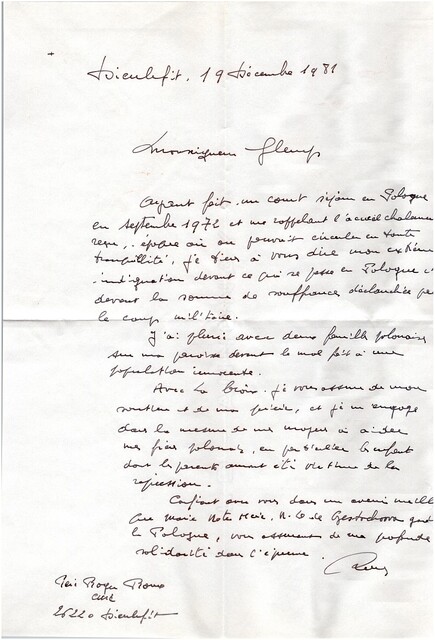 Dieulefit, 19 Décembre 1981
Monseigneur Glemp
Ayant fait un court séjour en Pologne
en septembre 1972 et me rappelant l'accueil chaleureux
reçu, époque où on pouvait circuler en toute
tranquillité, je tiens à vous dire mon extrême
indignation devant ce qui se passe en Pologne
devant la somme de souffrance déclanchée
le coup militaire.
J'ai avec deux famille polonaise
sur ma paroisse devant le mal fait à une
population innocente.
Avec La Croix je vous assure de mon
soutien et de ma prière, et je m'engage
dans la mesure de mes moyens à aider
mes frères polonais, en particulier les enfant
dont les parents auront été victime de la
répression.
Confiant avec vous dans un avenir
que Marie Notre Mère, N.D de Czestochowa
la Pologne, vous de ma profonde
solidarité dans l'épreuve.
Roger
curé
26220 Dieulefit